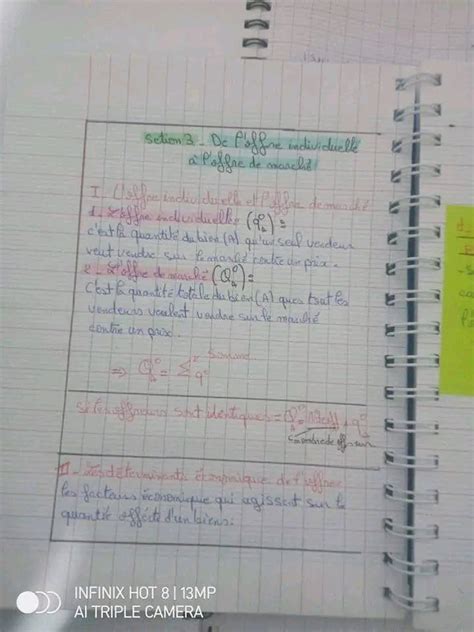 Section 3 - De l'offre individuelle
à l'offre de marché
I - L'offre individuelle et l'offre de marché
1 - L'offre individuelle (q°) =
c'est la quantité du bien (A) qu'un seul vendeur
veut vendre sur le marché contre un prix.
2 - L'offre de marché (Q°) =
C'est la quantité totale du bien (A) que tout les
vendeurs veulent vendre sur le marché
contre un prix.
⇒ Q° = Σ q°
si les offreurs sont identiques = Q°
II - Les déterminants économique de l'offre
les facteurs économique qui agissent sur la
quantité offerte d'un biens.
INFINIX HOT 8 | 13MP
AI TRIPLE CAMERA